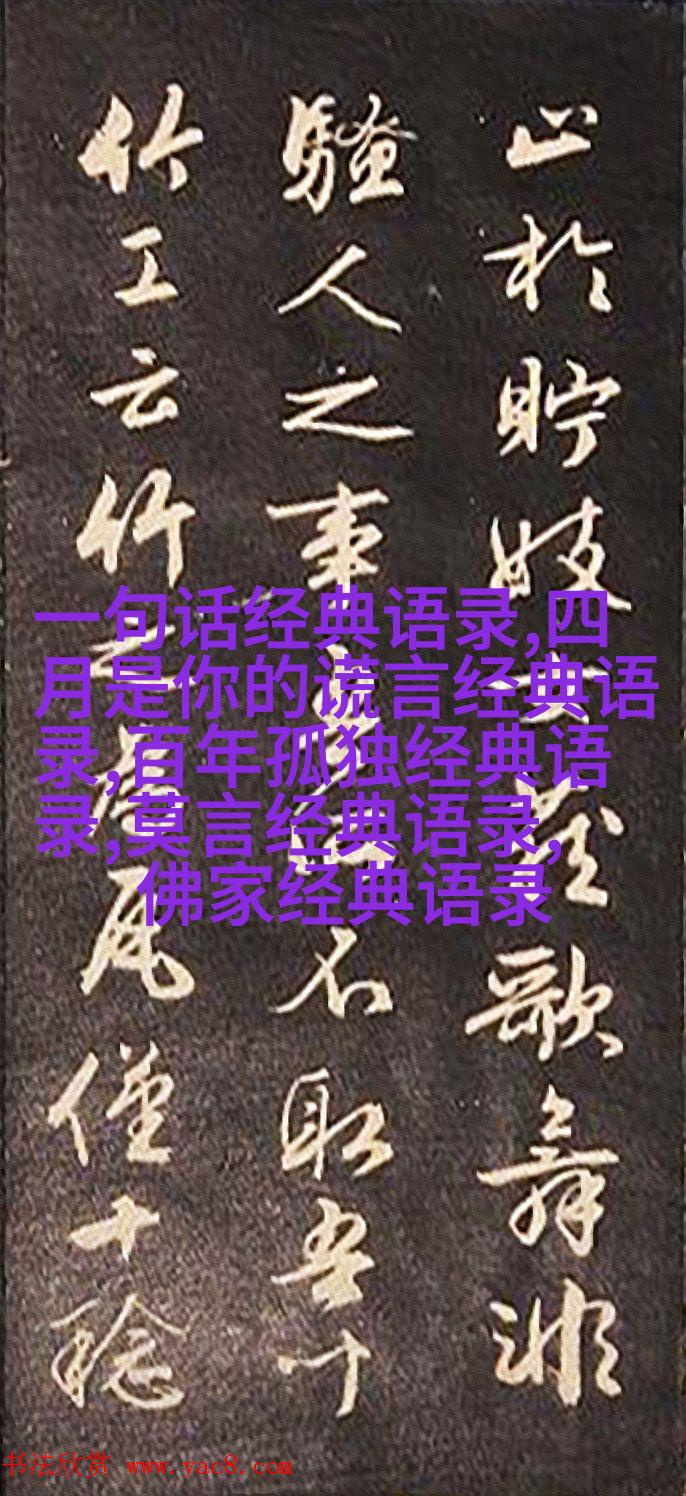 止於貯妓女藏歌舞非
騷人之事吾所不取吾
竹工云竹之為瓦僅十稔
一句话经典语录,四
月是你的谎言经典语
录,百年孤独经典语
录,莫言经典语录,
佛家经典语录
书法欣赏 www.yac8.com